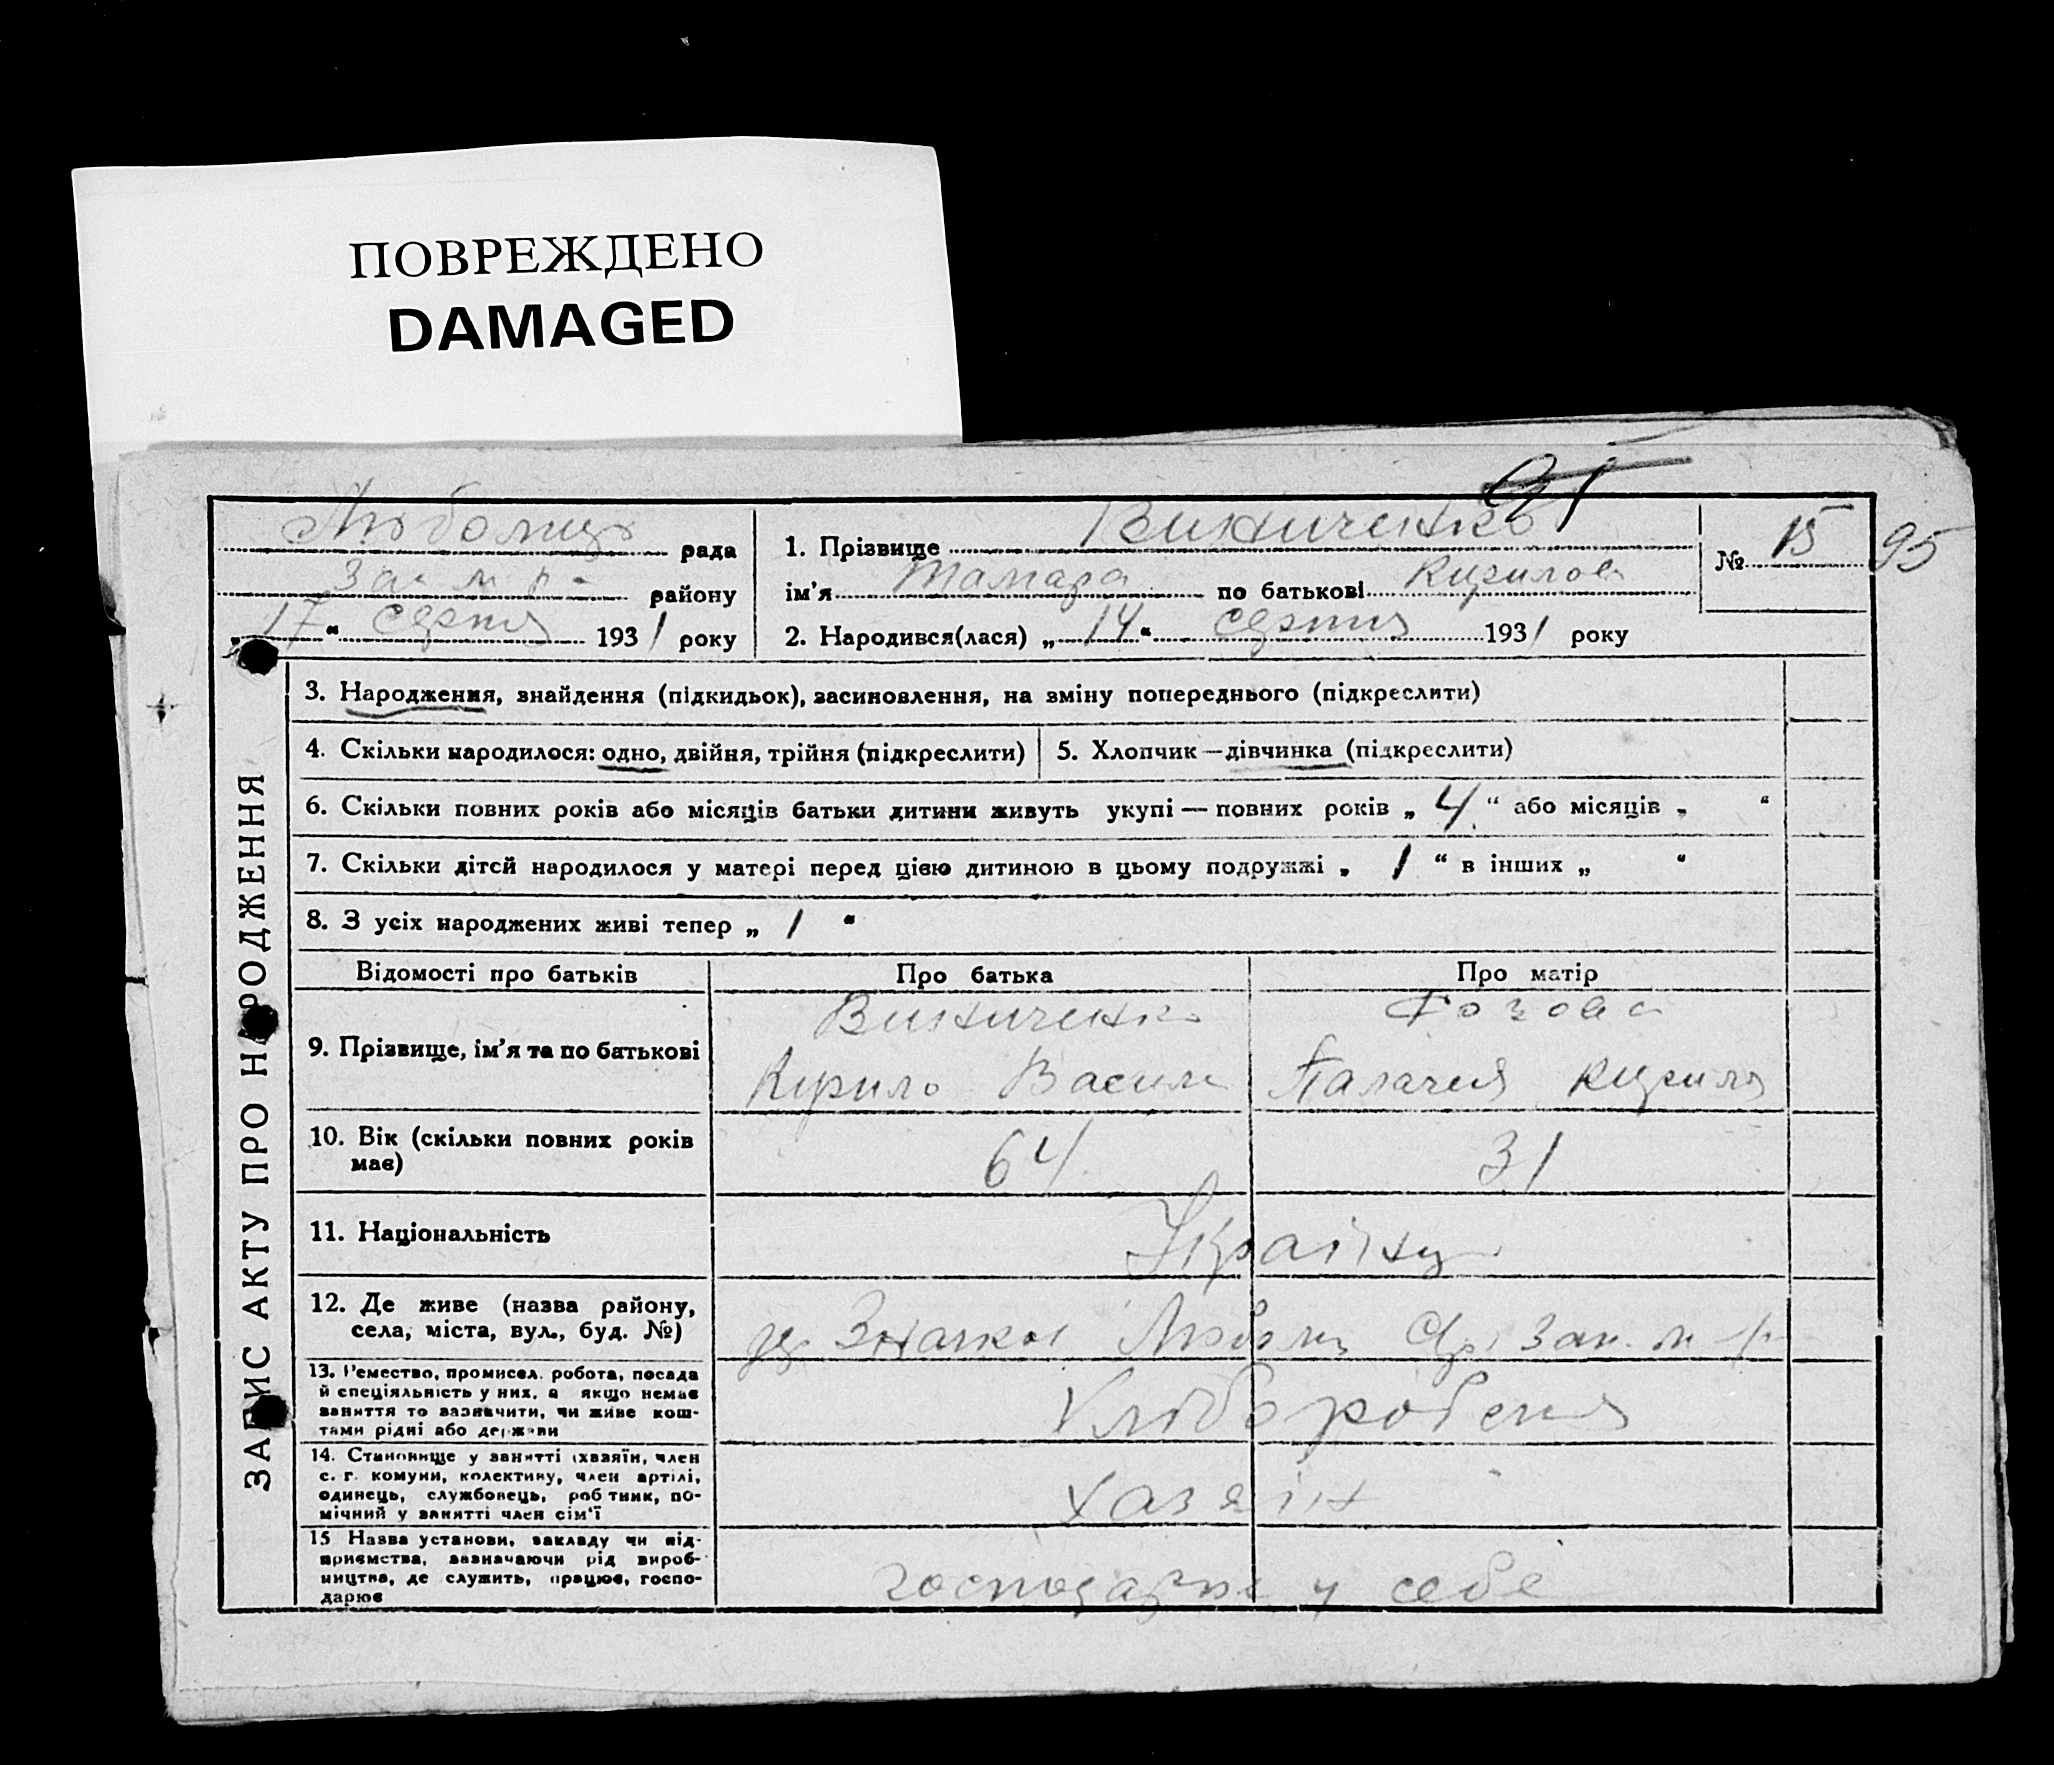 ПОВРЕЖДЕНО
DAMAGED
95
рада
1. Прізвище Виниченко
№ 15
95
Зап. м. р. району
ім'я Тамара по батькові Кирилов
„17“ серпня 1931 року
2. Народився(лася) „14“ серпня 1931 року
ЗАПИС АКТУ ПРО НАРОДЖЕННЯ
3. Народження, знайдення (підкидьок), засиновлення, на зміну попереднього (підкреслити)
4. Скільки народилося: одно, двійня, трійня (підкреслити)
5. Хлопчик—дівчинка (підкреслити)
6. Скільки повних років або місяців батьки дитини живуть укупі — повних років „4“ або місяців „ “
7. Скільки дітей народилося у матері перед цією дитиною в цьому подружжі „ 1 “ в інших „ “
8. З усіх народжених живі тепер „ 1 “
Відомості про батьків
Про батька
Про матір
9. Прізвище, ім'я та по батькові
Виниченко
Кирило Васил
Козова
Палачея Кирил
10. Вік (скільки повних років
має)
64
31
11. Національність
Українц
12. Де живе (назва району,
села, міста, вул., буд. №)
13. Ремество, промисел, робота, посада
й спеціяльність у них, а якщо немає
заняття то зазначити, чи живе кош-
тами рідні або держави
Хліборобеня
14. Становище у занятті (хазяїн, член
с. г. комуни, колективу, член артілі,
одинець, службовець, робітник, по-
мічний у занятті член сім'ї
хазяїн
15 Назва установи, закладу чи під-
приємства, зазначаючи рід вироб-
ництва, де служить, працює, госпо-
дарює
господарює у себе